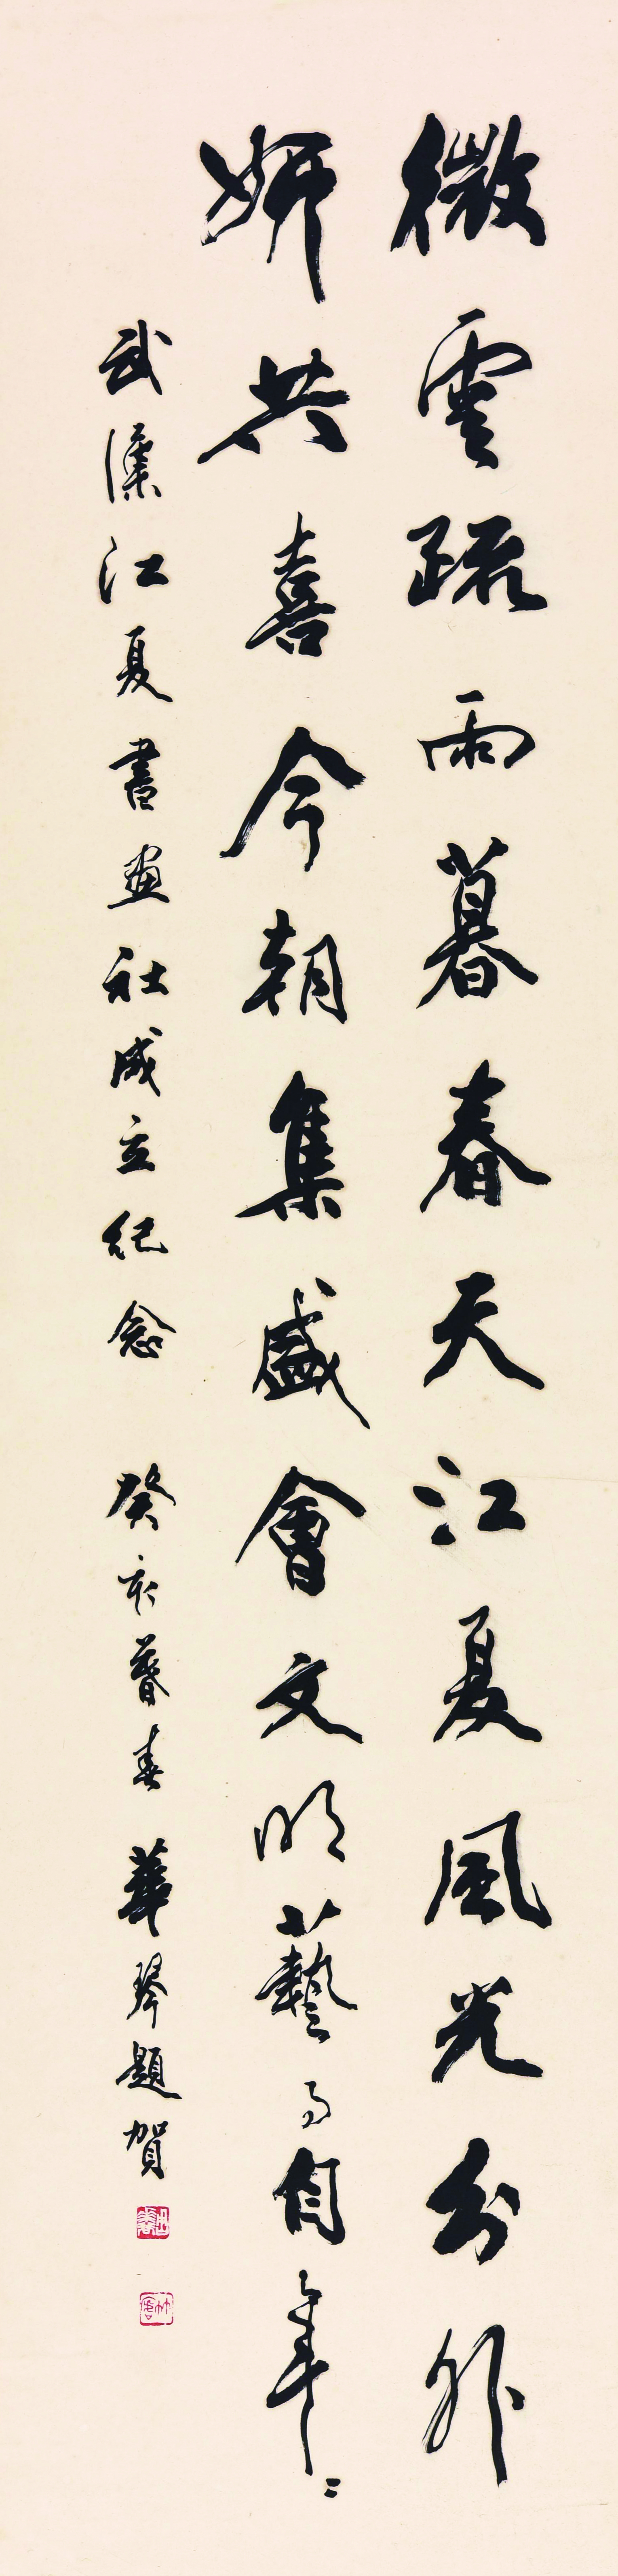 微雲疏雨暮春天江夏風光分外
妍共喜今朝集盛會文明藝事自年々
武漢江夏書畫社成立紀念 癸亥暮春 華琴題賀